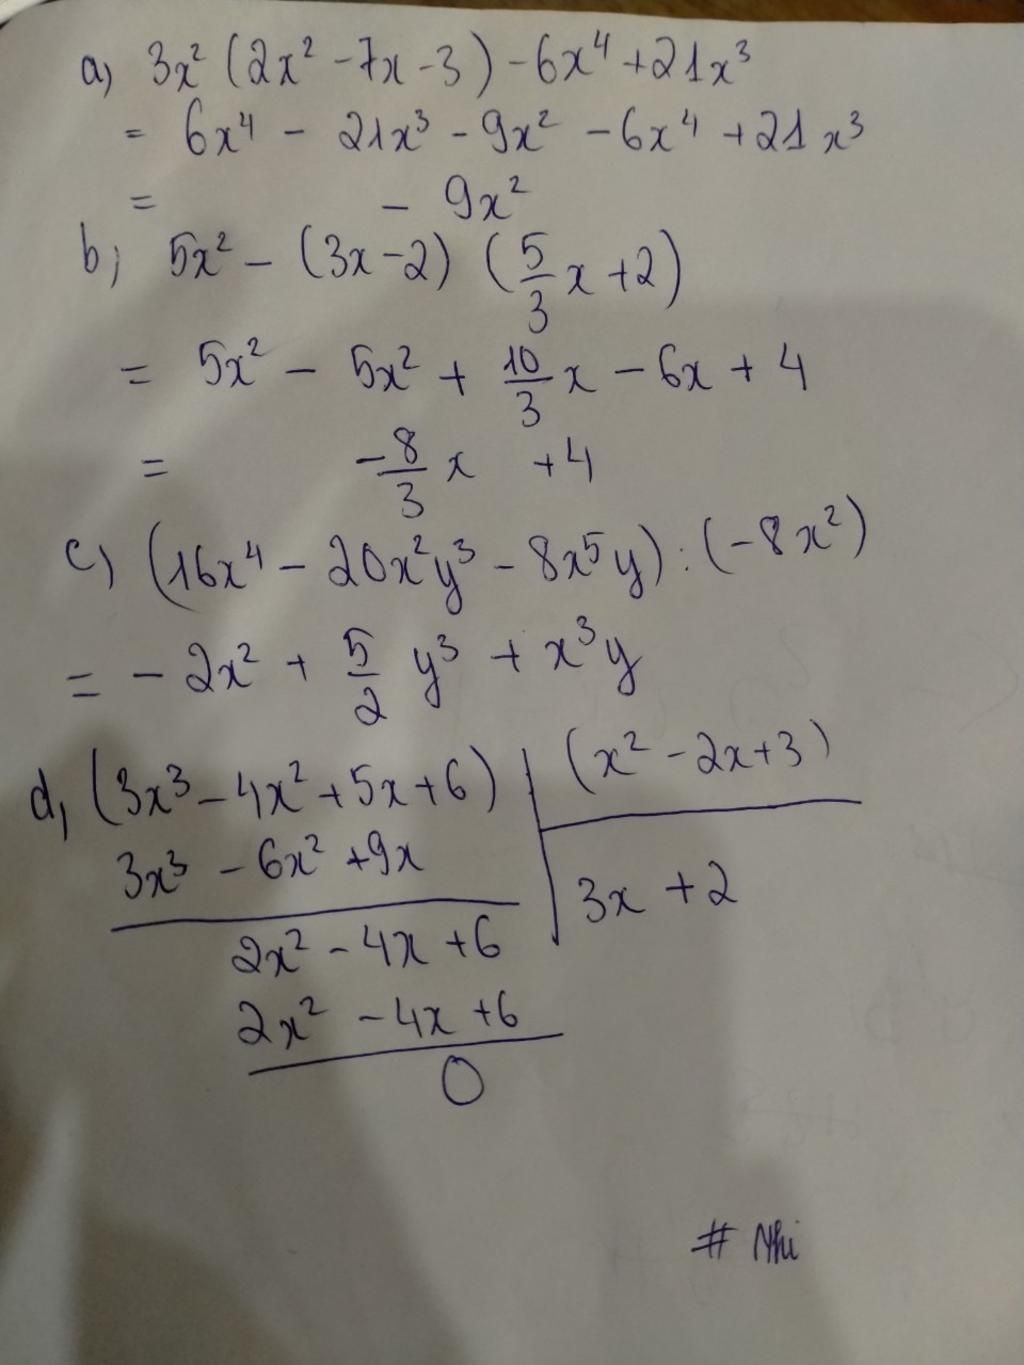 a) 3x² (2x² - 7x - 3) - 6x⁴ + 21x³
= 6x⁴ - 21x³ - 9x² - 6x⁴ + 21x³
= - 9x²
b) 5x² - (3x - 2) (5/3 x + 2)
= 5x² - 5x² + 10/3 x - 6x + 4
= -8/3 x + 4
c) (16x⁴ - 20x²y³ - 8x⁵y) : (-8x²)
= - 2x² + 5/2 y³ + x³y
d, (3x³ - 4x² + 5x + 6) | (x² - 2x + 3)
3x³ - 6x² + 9x | 3x + 2
2x² - 4x + 6
2x² - 4x + 6
0
# Nhi